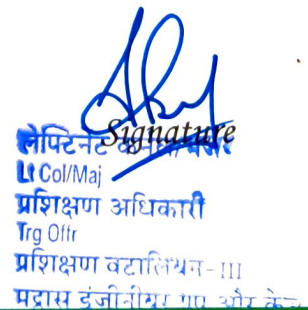 Signature
लेफ्टिनेंट कर्नल/मेजर
Lt Col/Maj
प्रशिक्षण अधिकारी
Trg Offr
प्रशिक्षण वटालियन-III
मद्रास इंजीनीयर ग्रुप और केन्द्र